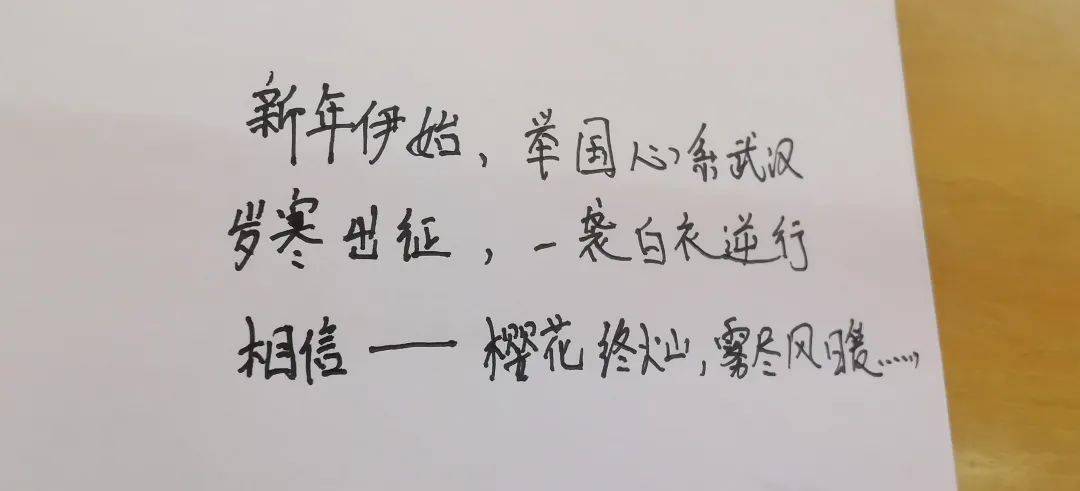 新年伊始，举国心系武汉
岁寒出征，一袭白衣逆行
相信——樱花终灿，雾尽风暖……